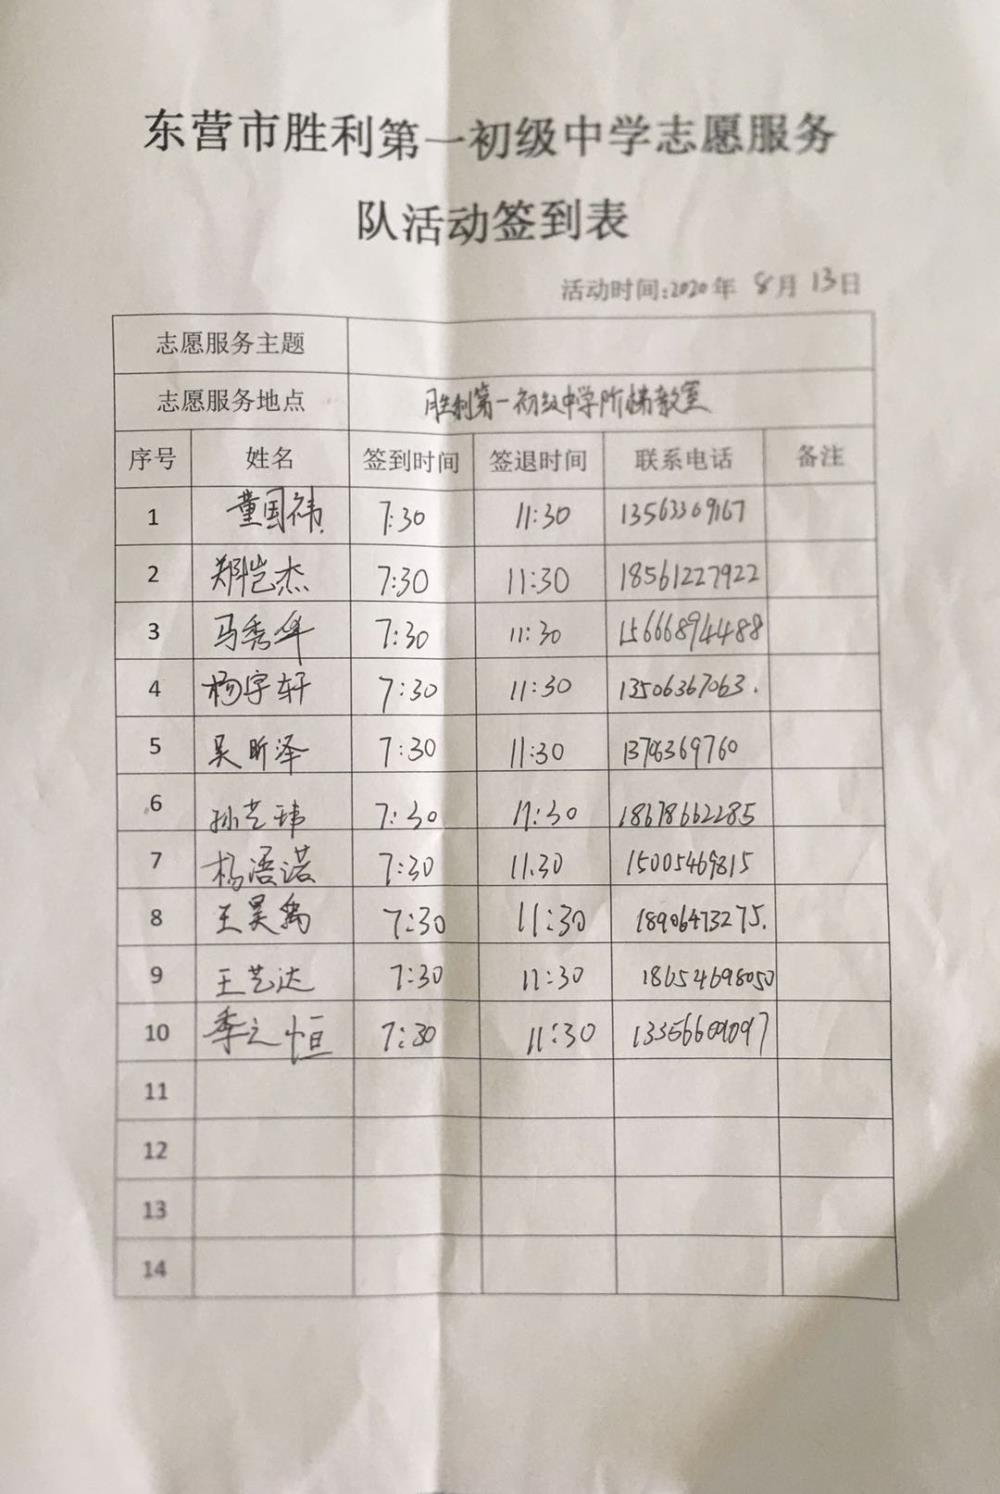 东营市胜利第一初级中学志愿服务
队活动签到表
活动时间:2020年 8月 13日
志愿服务主题
志愿服务地点 胜利第一初级中学阶梯教室
序号 姓名 签到时间 签退时间 联系电话 备注
1 童国祎 7:30 11:30 13563369167
2 郑恺杰 7:30 11:30 18561227922
3 马秀华 7:30 11:30 15666894488
4 杨宇轩 7:30 11:30 13506367063.
5 吴昕泽 7:30 11:30
6 孙艺玮 7:30 11:30 18678662285
7 杨浯诺 7:30 11.30 15005469815
8 王昊禹 7:30 11:30 18906473275.
9 王艺达 7:30 11:30 18654698050
10 季之恒 7:30 11:30
11
12
13
14